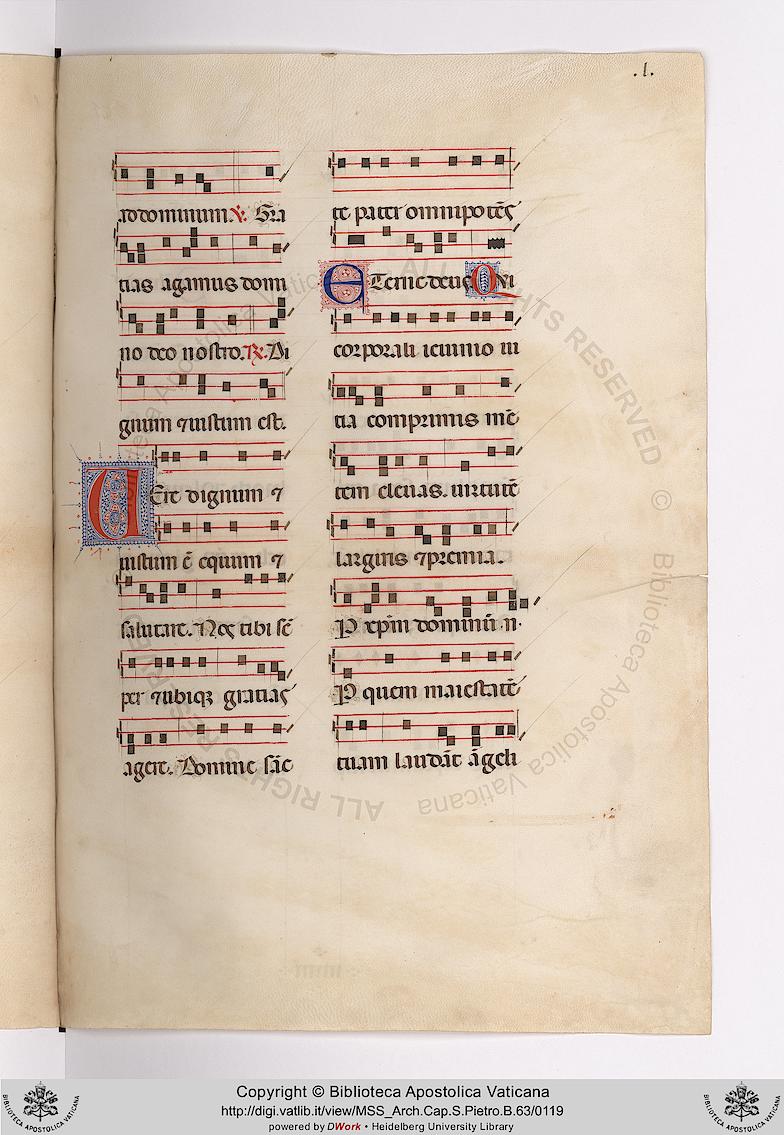 .l.
ad dominum. ℣. Gra
tias agamus domi
no deo nostro. ℟. Di
gnum ⁊ iustum est.
VEre dignum ⁊
iustum ē equum ⁊
salutare. Nos tibi sē
per ⁊ ubiqꝫ gratias
agere. Domine sāc
te pater omnipotēs
ETerne deus Qui
corporali ieiunio ui
tia comprimis mē
tem eleuas. uirtutē
largiris ⁊ premia.
P xp̄m dominū n.
P quem maiestatē
tuam laudāt āgeli
ALL RIGHTS RESERVED © Biblioteca Apostolica Vaticana
Copyright © Biblioteca Apostolica Vaticana
http://digi.vatlib.it/view/MSS_Arch.Cap.S.Pietro.B.63/0119
powered by DWork • Heidelberg University Library
BIBLIOTECA APOSTOLICA VATICANA
BIBLIOTECA APOSTOLICA VATICANA